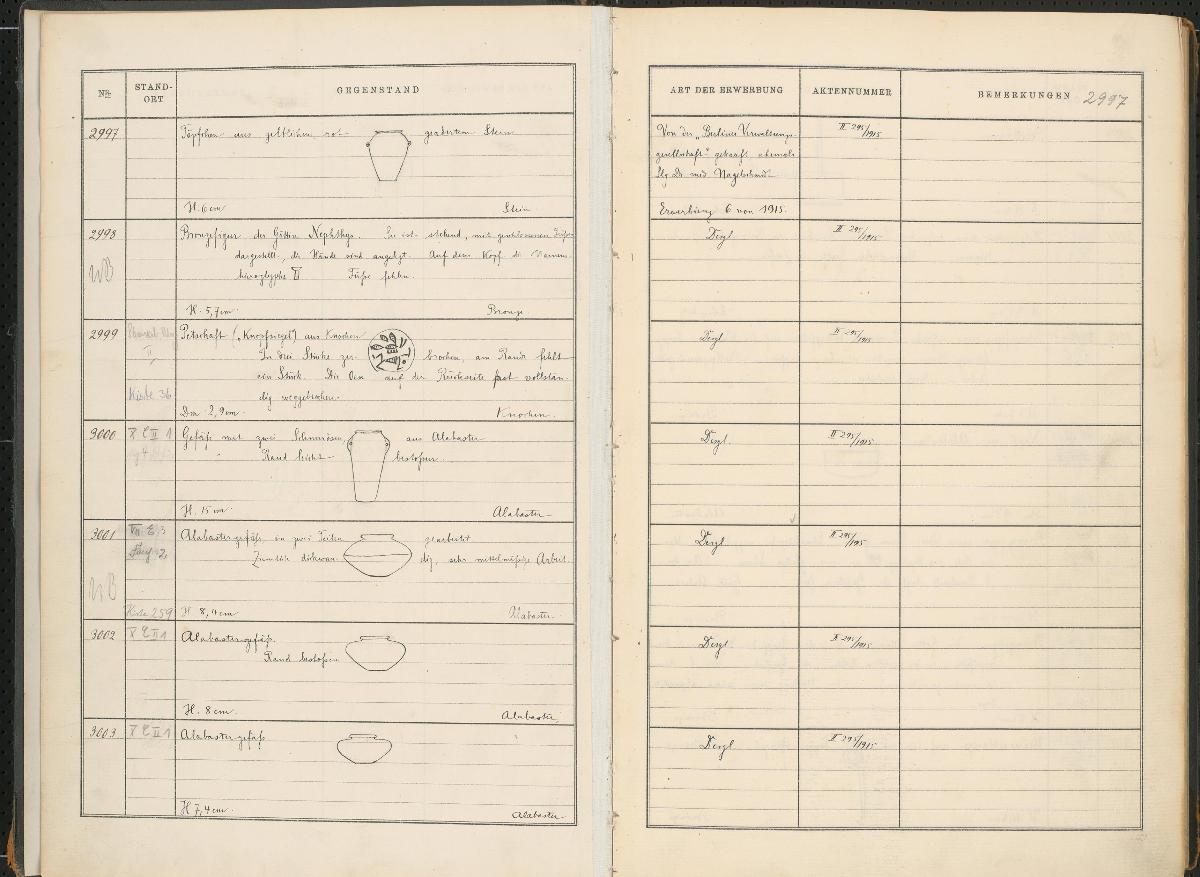 Nr. STAND- GEGENSTAND
ORT
2997 Töpfchen aus gelblichem rot- geädertem Stein
H. 6 cm Stein
2998 Bronzefigur der Göttin Nephthys. Sie ist stehend, mit geschlossenen Füßen
dargestellt, die Hände sind angelegt. Auf dem Kopf die Namens-
hieroglyphe Füße fehlen.
H. 5,7 cm Bronze
2999 Petschaft („Knopfsiegel") aus Knochen
In drei Stücke zer- brochen, am Rande fehlt
ein Stück. Die Öse auf der Rückseite fast vollstän-
Kiste 36 dig weggebrochen.
Dm 2,9 cm. Knochen.
3000 X C II 1 Gefäß mit zwei Schnurösen aus Alabaster
Rand leicht bestoßen.
H. 15 cm. Alabaster
3001 VII E 3 Alabastergefäß, in zwei Teilen gearbeitet
Ziemlich dickwan- dig, sehr mittelmäßige Arbeit.
Kiste 259 H 8,4 cm Alabaster
3002 X C II 1 Alabastergefäß.
Rand bestoßen
H. 8 cm. Alabaster.
3003 X C II 1 Alabastergefäß.
H 7,4 cm. Alabaster.
ART DER ERWERBUNG AKTENNUMMER BEMERKUNGEN 2997
Von der „Berliner Verwaltungs- II 295/1915
gesellschaft" gekauft. ehemals
Slg. Dr. med. Nagelschmidt
Erwerbung 6 von 1915.
Desgl. II 295/1915
Desgl. II 295/1915
Desgl. II 295/1915
Desgl. II 295/1915
Desgl. II 295/1915
Desgl. II 295/1915